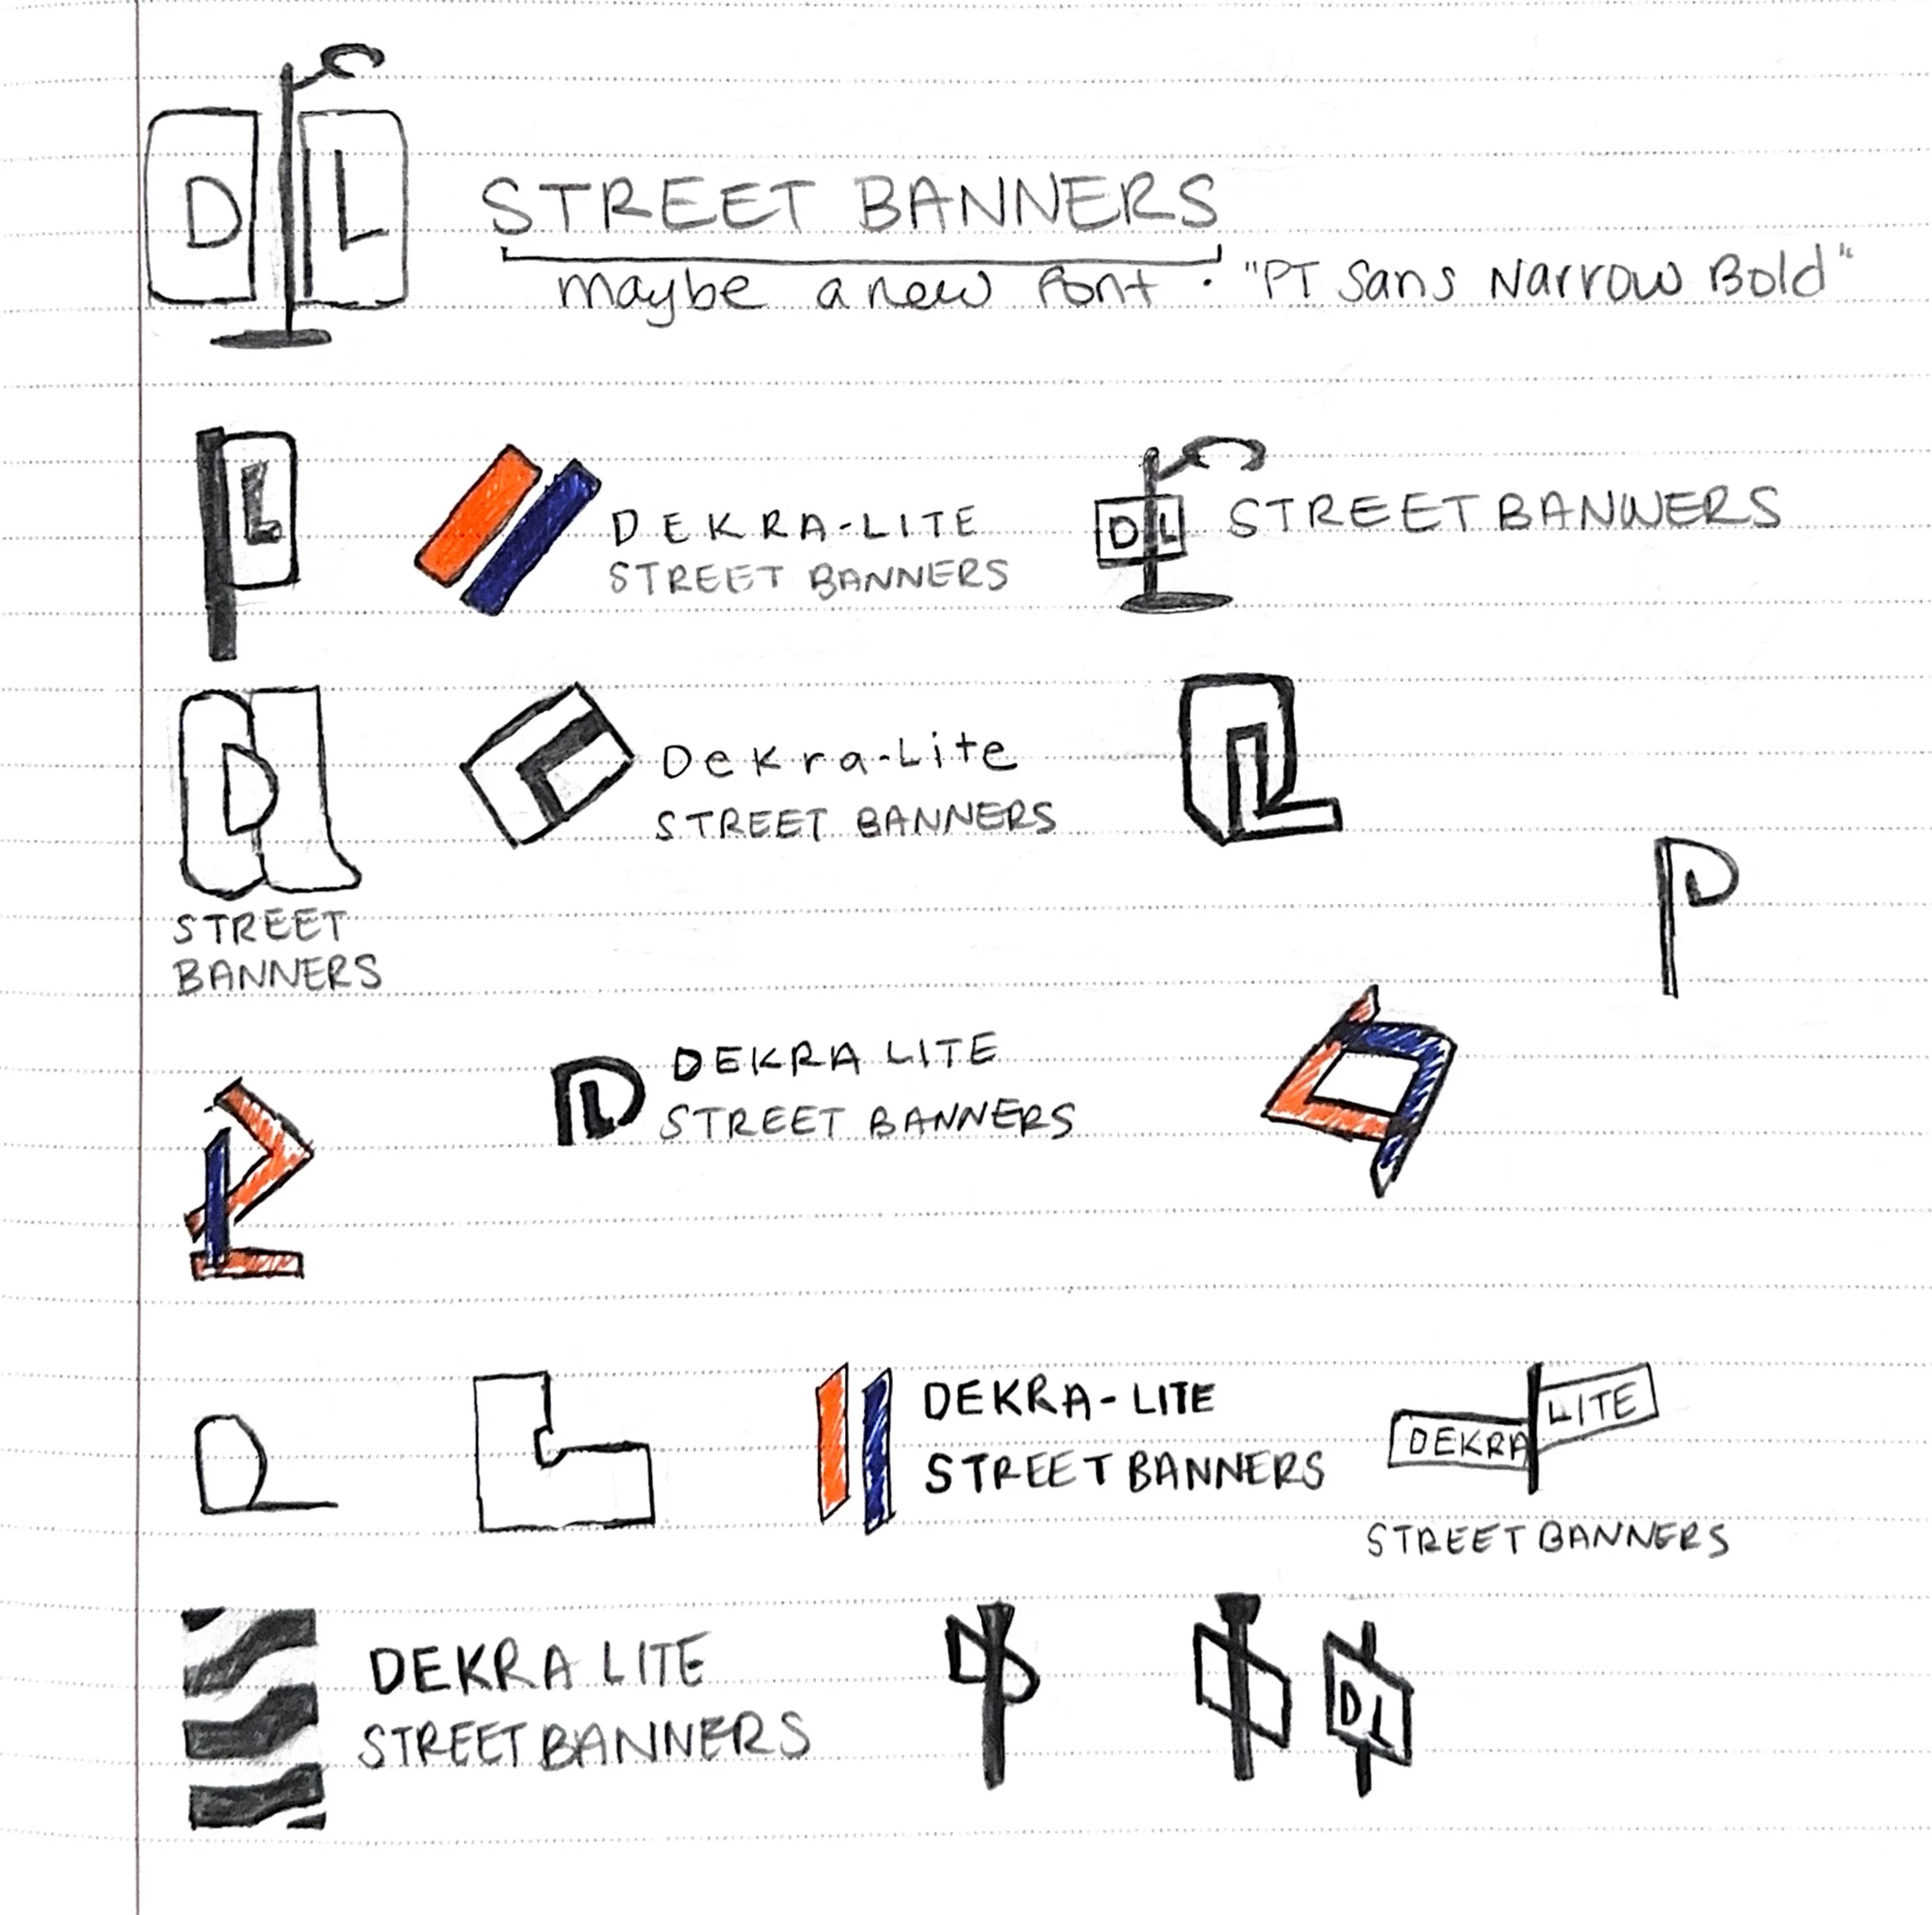 D L
STREET BANNERS
maybe a new font. "PT Sans Narrow Bold"
L
DEKRA-LITE
STREET BANNERS
DL STREET BANNERS
D
STREET
BANNERS
L
Dekra-Lite
STREET BANNERS
L
DL
DL
DEKRA LITE
STREET BANNERS
D
DEKRA-LITE
STREET BANNERS
DEKRA LITE
STREET BANNERS
DEKRA LITE
STREET BANNERS
D
DL